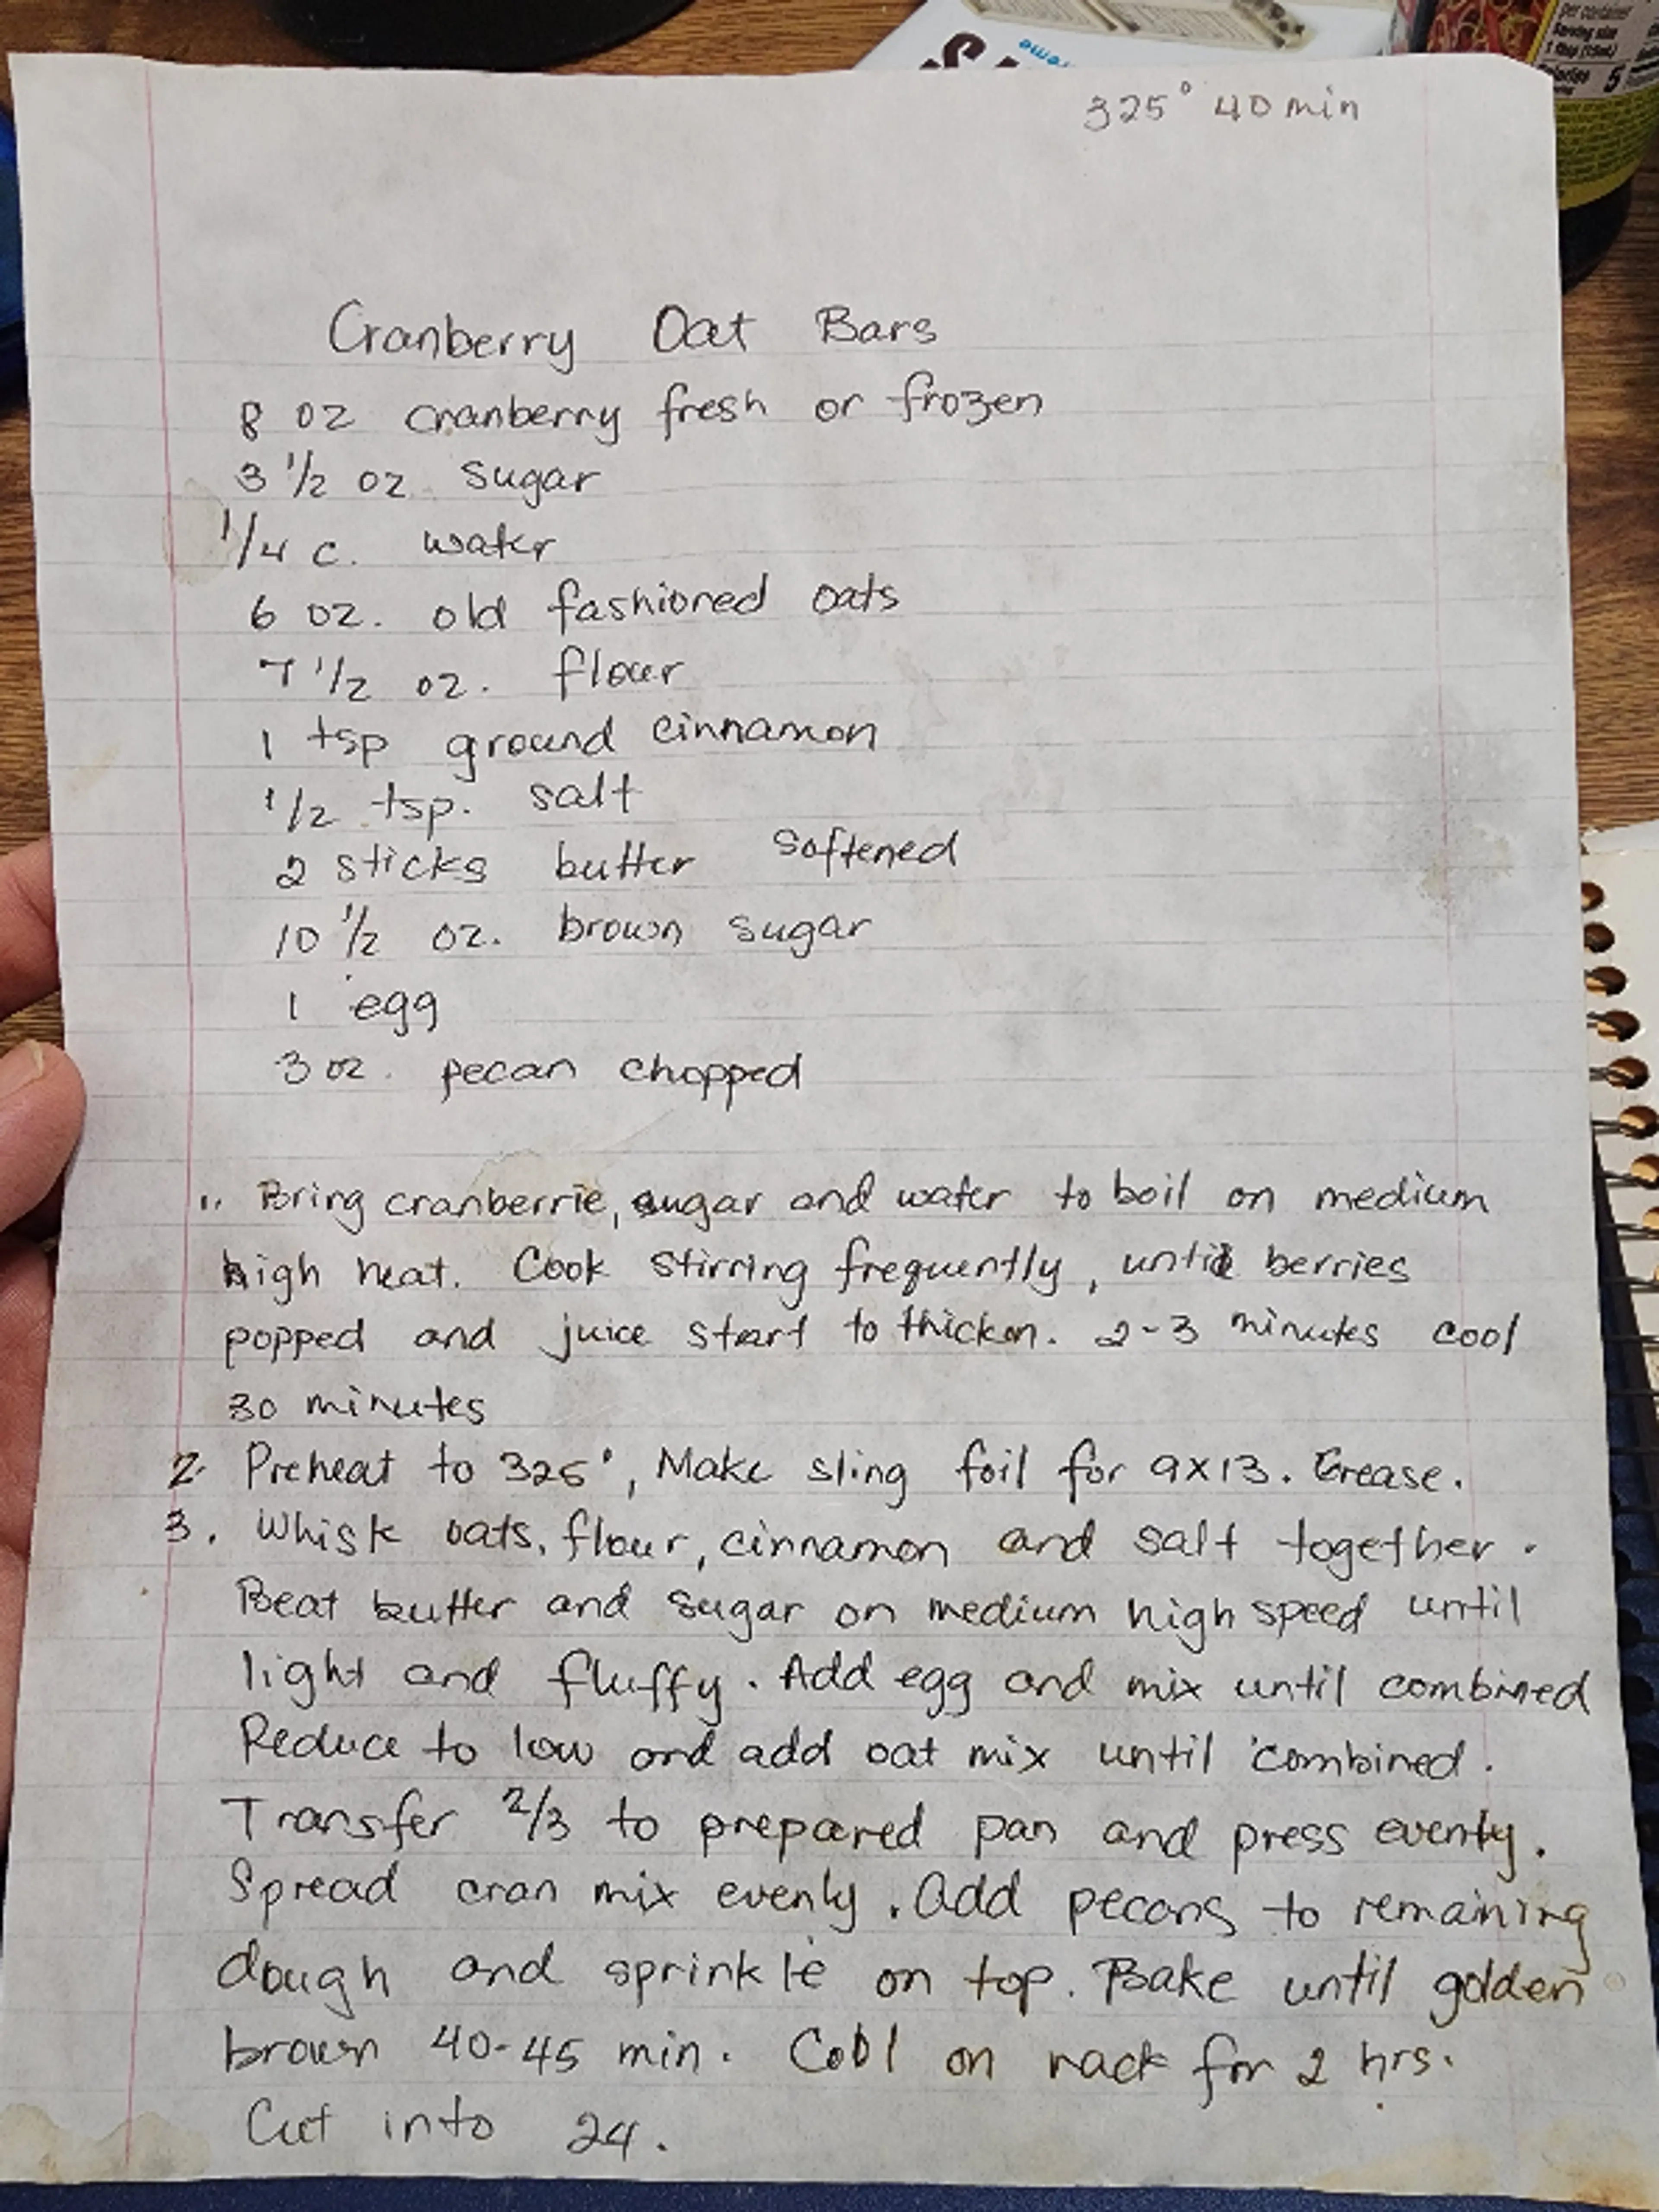 per container
Serving size
1 tbsp (15mL)
Calories 5
325° 40 min
Cranberry Oat Bars
8 oz cranberry fresh or frozen
3 1/2 oz. sugar
1/4 c. water
6 oz. old fashioned oats
7 1/2 oz. flour
1 tsp ground cinnamon
1/2 tsp. salt
2 sticks butter softened
10 1/2 oz. brown sugar
1 egg
3 oz. pecan chopped
1. Bring cranberrie, sugar and water to boil on medium
high heat. Cook stirring frequently, until berries
popped and juice start to thicken. 2-3 minutes cool
30 minutes
2. Preheat to 325°, Make sling foil for 9x13. Grease.
3. Whisk oats, flour, cinnamon and salt together.
Beat butter and sugar on medium high speed until
light and fluffy. Add egg and mix until combined
Reduce to low and add oat mix until combined.
Transfer 2/3 to prepared pan and press evenly.
Spread cran mix evenly. Add pecans to remaining
dough and sprinkle on top. Bake until golden
brown 40-45 min. Cool on rack for 2 hrs.
Cut into 24.